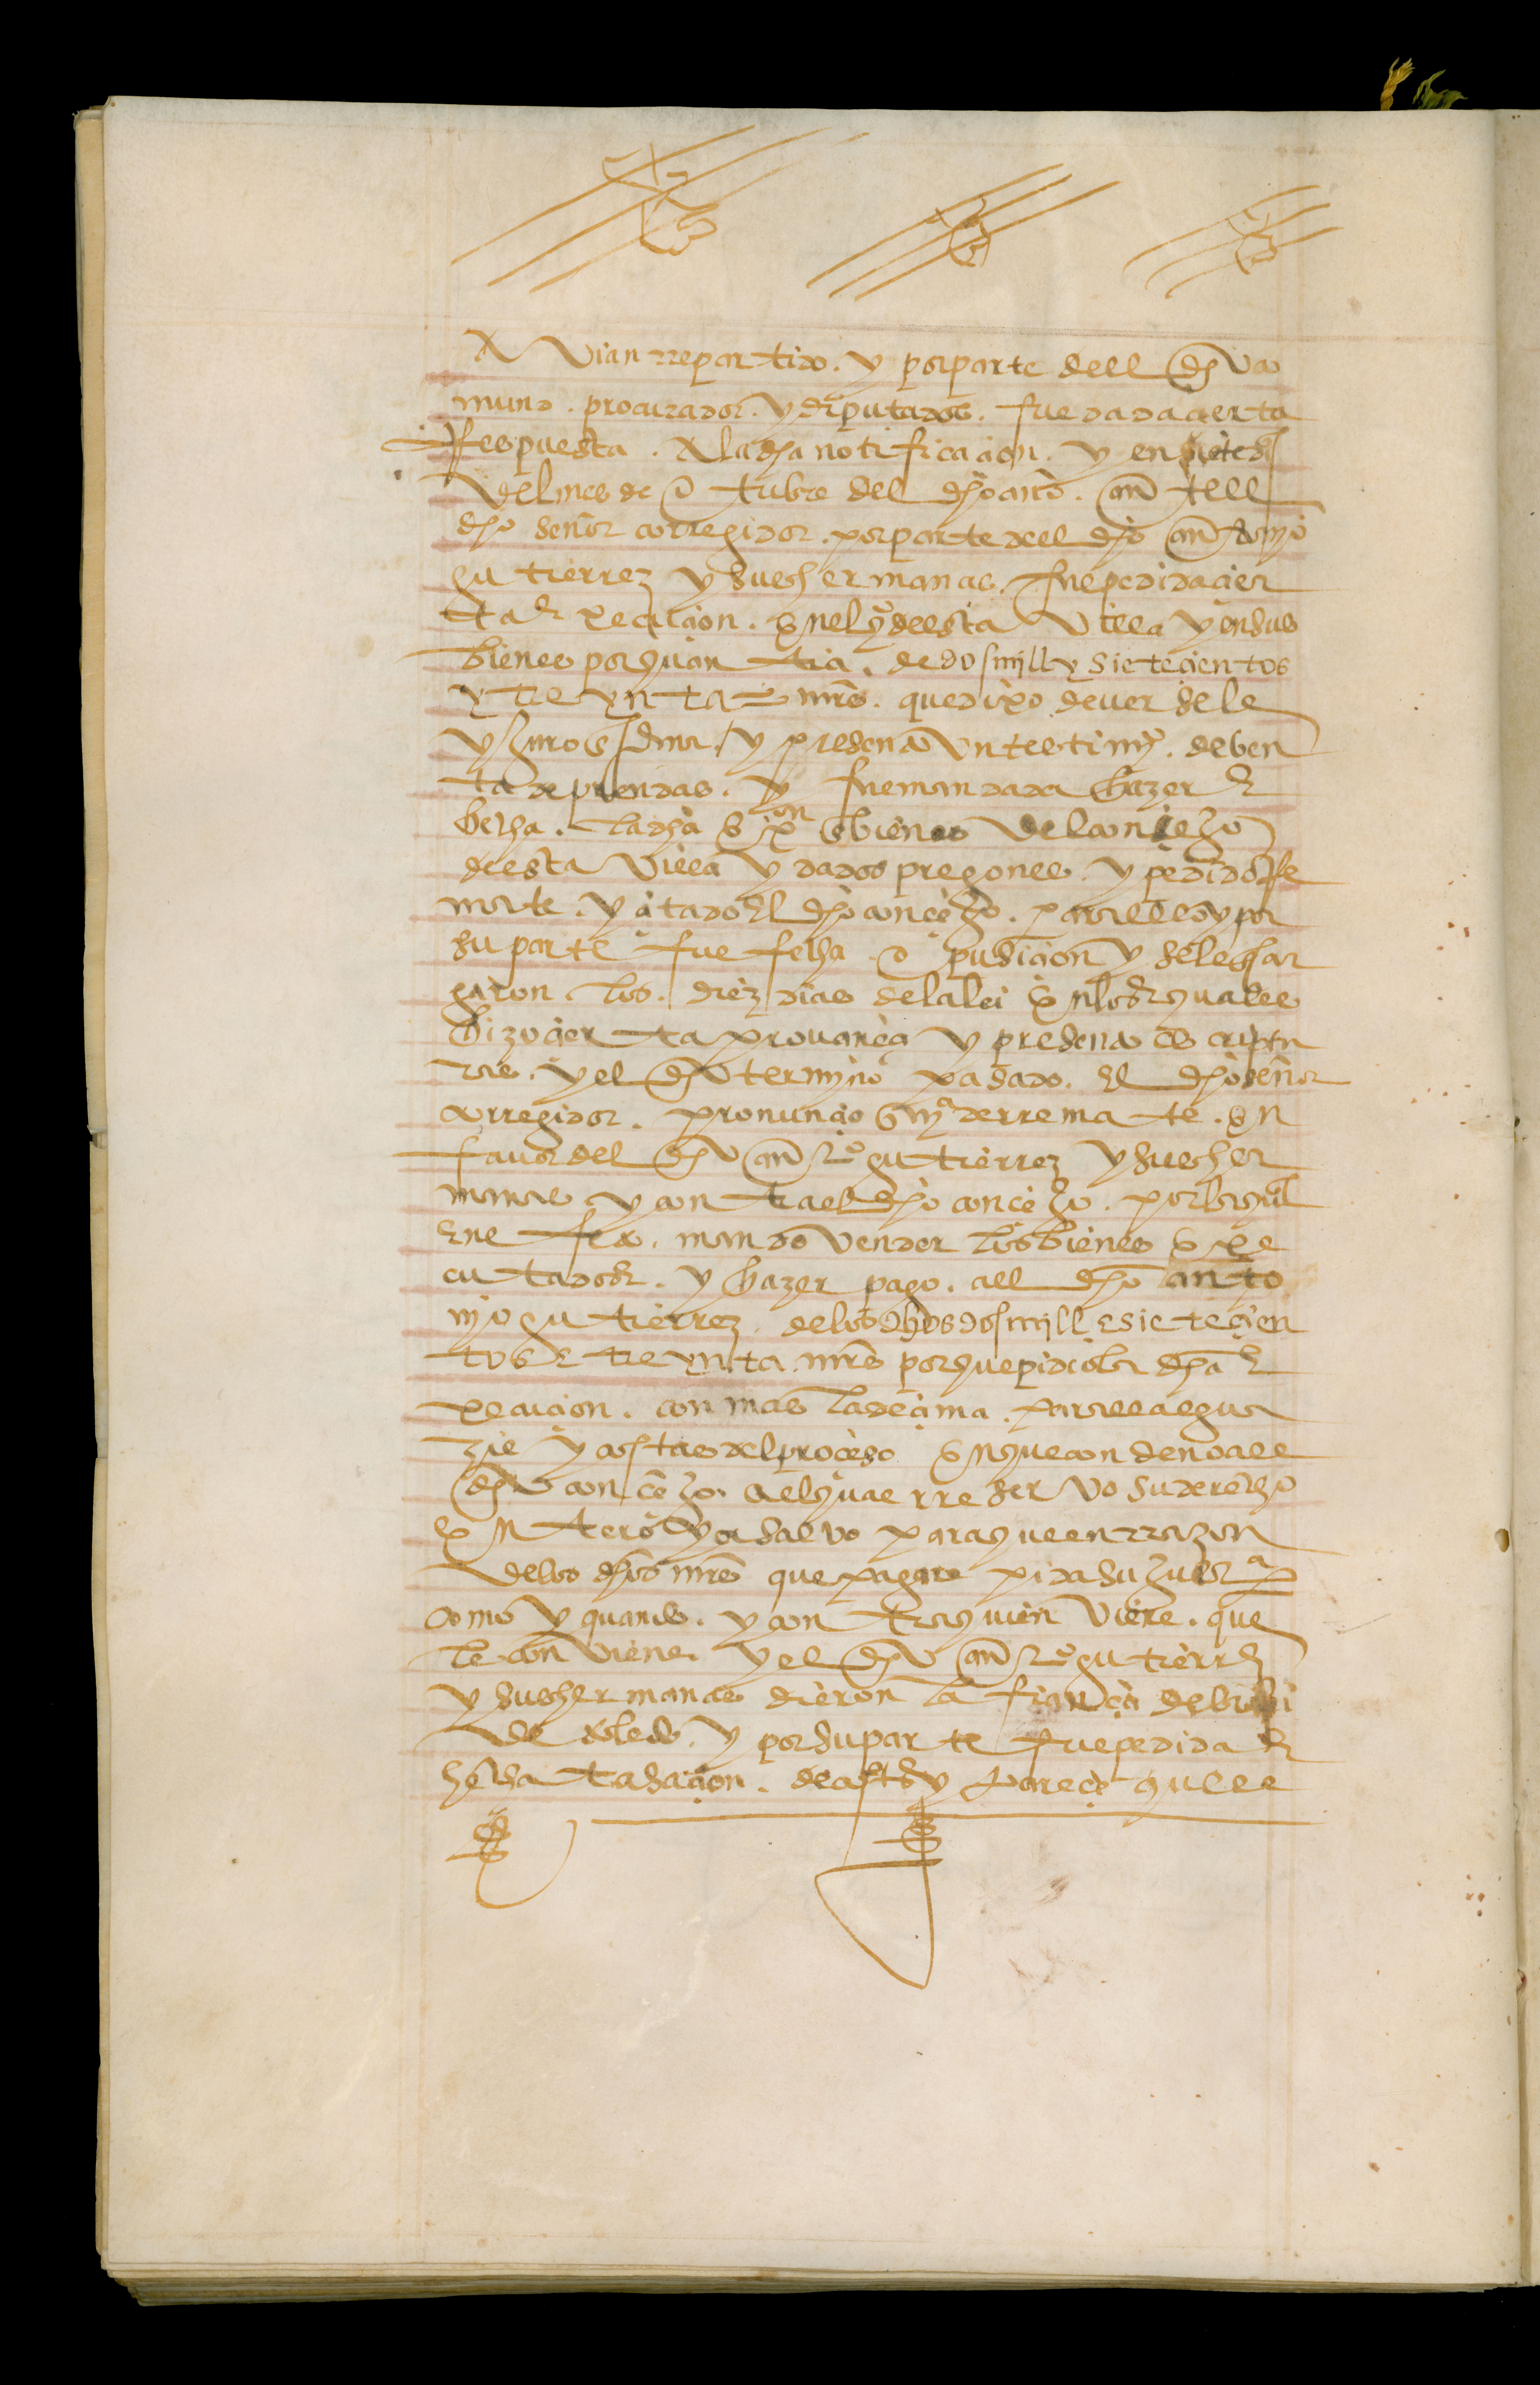 avian rrepartido. y por parte dell dho co
mun. procurador. y diputados. fue dada cierta
rrespuesta. a la dha notificacion. y en siete ds
del mes de otubre del dho año. ante ell
dho señor corregidor. por parte del dho antonio
gutierrez y sus hermanas. fue pedida cier
ta execucion. en el q° desta villa y en sus
bienes por quantia. de dos mill y sietecientos
y treynta mrs. que dixo deversele
y juro la dma, y presento un testimyo. de ben
ta de prendas. y fue mandada hazer e
hecha. la dha exon en bienes del concejo
desta villa y dados pregones. y pedido rre
mate. y citado el dho concejo. para ello y por
su parte fue fecha opusicion y se le en car
garon los. diez dias de la lei en los quales
hizo cierta provança y presento escriptu
ras. y el dho termyno pasado. el dho señor
corregidor. pronuncio sena de rremate. en
favor del dho antonio gutierrez y sus her
manas y contra el dho concejo. por la qual
en efeto. mando vender los bienes exe
cutados. y hazer pago. all dho anto
nyo gutierrez. de los dhos dos mill e sietecien
tos e treynta mrs por que pidio la dha e
xecucion. con mas la decima. para el algua
zil y costas del proceso en que condeno all
dho concejo. al qual rreservo su derecho
entero y a salvo para que en rrazon
de los dhos mrs que pagare pida su justa
como y quando. y contra quien viere. que
le conviene. y el dho antonio gutierrez
y sus hermanas dieron la fiança de la lei
de toledo. y por su parte fue pedida e
hecha tasacion. de costas y parece que ll